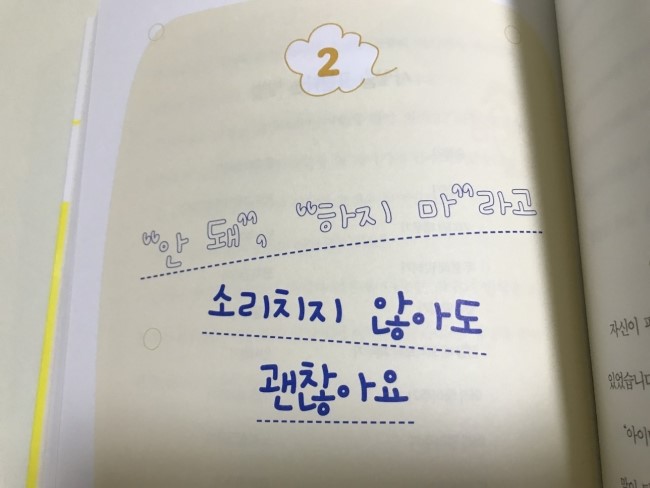 2
“안 돼”, “하지 마”라고
소리치지 않아도
괜찮아요
자신이
있었습니다
‘아이